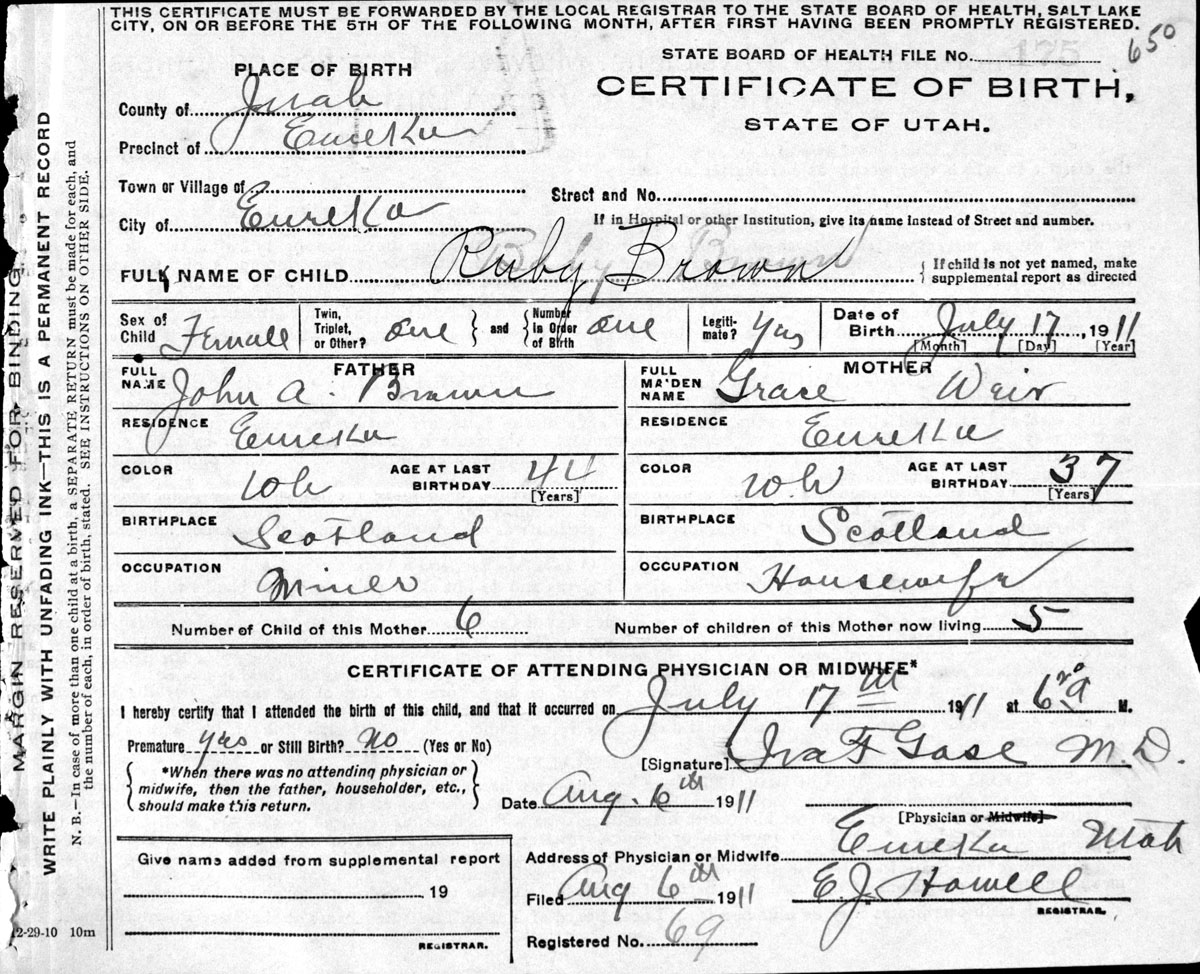 THIS CERTIFICATE MUST BE FORWARDED BY THE LOCAL REGISTRAR TO THE STATE BOARD OF HEALTH, SALT LAKE
CITY, ON OR BEFORE THE 5TH OF THE FOLLOWING MONTH, AFTER FIRST HAVING BEEN PROMPTLY REGISTERED.
650
STATE BOARD OF HEALTH FILE No.
CERTIFICATE OF BIRTH,
STATE OF UTAH.
PLACE OF BIRTH
County of Juab
Precinct of Eureka
Town or Village of
Street and No.
City of Eureka
If in Hospital or other Institution, give its name instead of Street and number.
FULL NAME OF CHILD Ruby Brown
If child is not yet named, make
supplemental report as directed
Sex of Child Female
Twin, Triplet, or Other? One
and
Number in Order of Birth One
Legiti- mate? Yes
Date of Birth July 17, 1911
[Month] [Day] [Year]
FATHER
FULL NAME John A. Brown
RESIDENCE Eureka
COLOR Wh
AGE AT LAST BIRTHDAY 44
[Years]
BIRTHPLACE Scotland
OCCUPATION Miner
MOTHER
FULL MAIDEN NAME Grace Weir
RESIDENCE Eureka
COLOR Wh
AGE AT LAST BIRTHDAY 37
[Years]
BIRTHPLACE Scotland
OCCUPATION Housewife
Number of Child of this Mother 6
Number of children of this Mother now living 5
CERTIFICATE OF ATTENDING PHYSICIAN OR MIDWIFE*
I hereby certify that I attended the birth of this child, and that it occurred on July 17th 1911 at 6 20 a M.
Premature yes or Still Birth? No (Yes or No)
*When there was no attending physician or
midwife, then the father, householder, etc.,
should make this return.
[Signature] M.D.
Date Aug. 6th 1911
[Physician or Midwife]
Address of Physician or Midwife Eureka Utah
Filed Aug 6th 1911
E.J. Howell
REGISTRAR.
Registered No. 69
Give name added from supplemental report
19
REGISTRAR.
12-29-10 10m
MARGIN RESERVED FOR BINDING.
WRITE PLAINLY WITH UNFADING INK—THIS IS A PERMANENT RECORD
N. B.—In case of more than one child at a birth, a SEPARATE RETURN must be made for each, and
the number of each, in order of birth, stated. SEE INSTRUCTIONS ON OTHER SIDE.